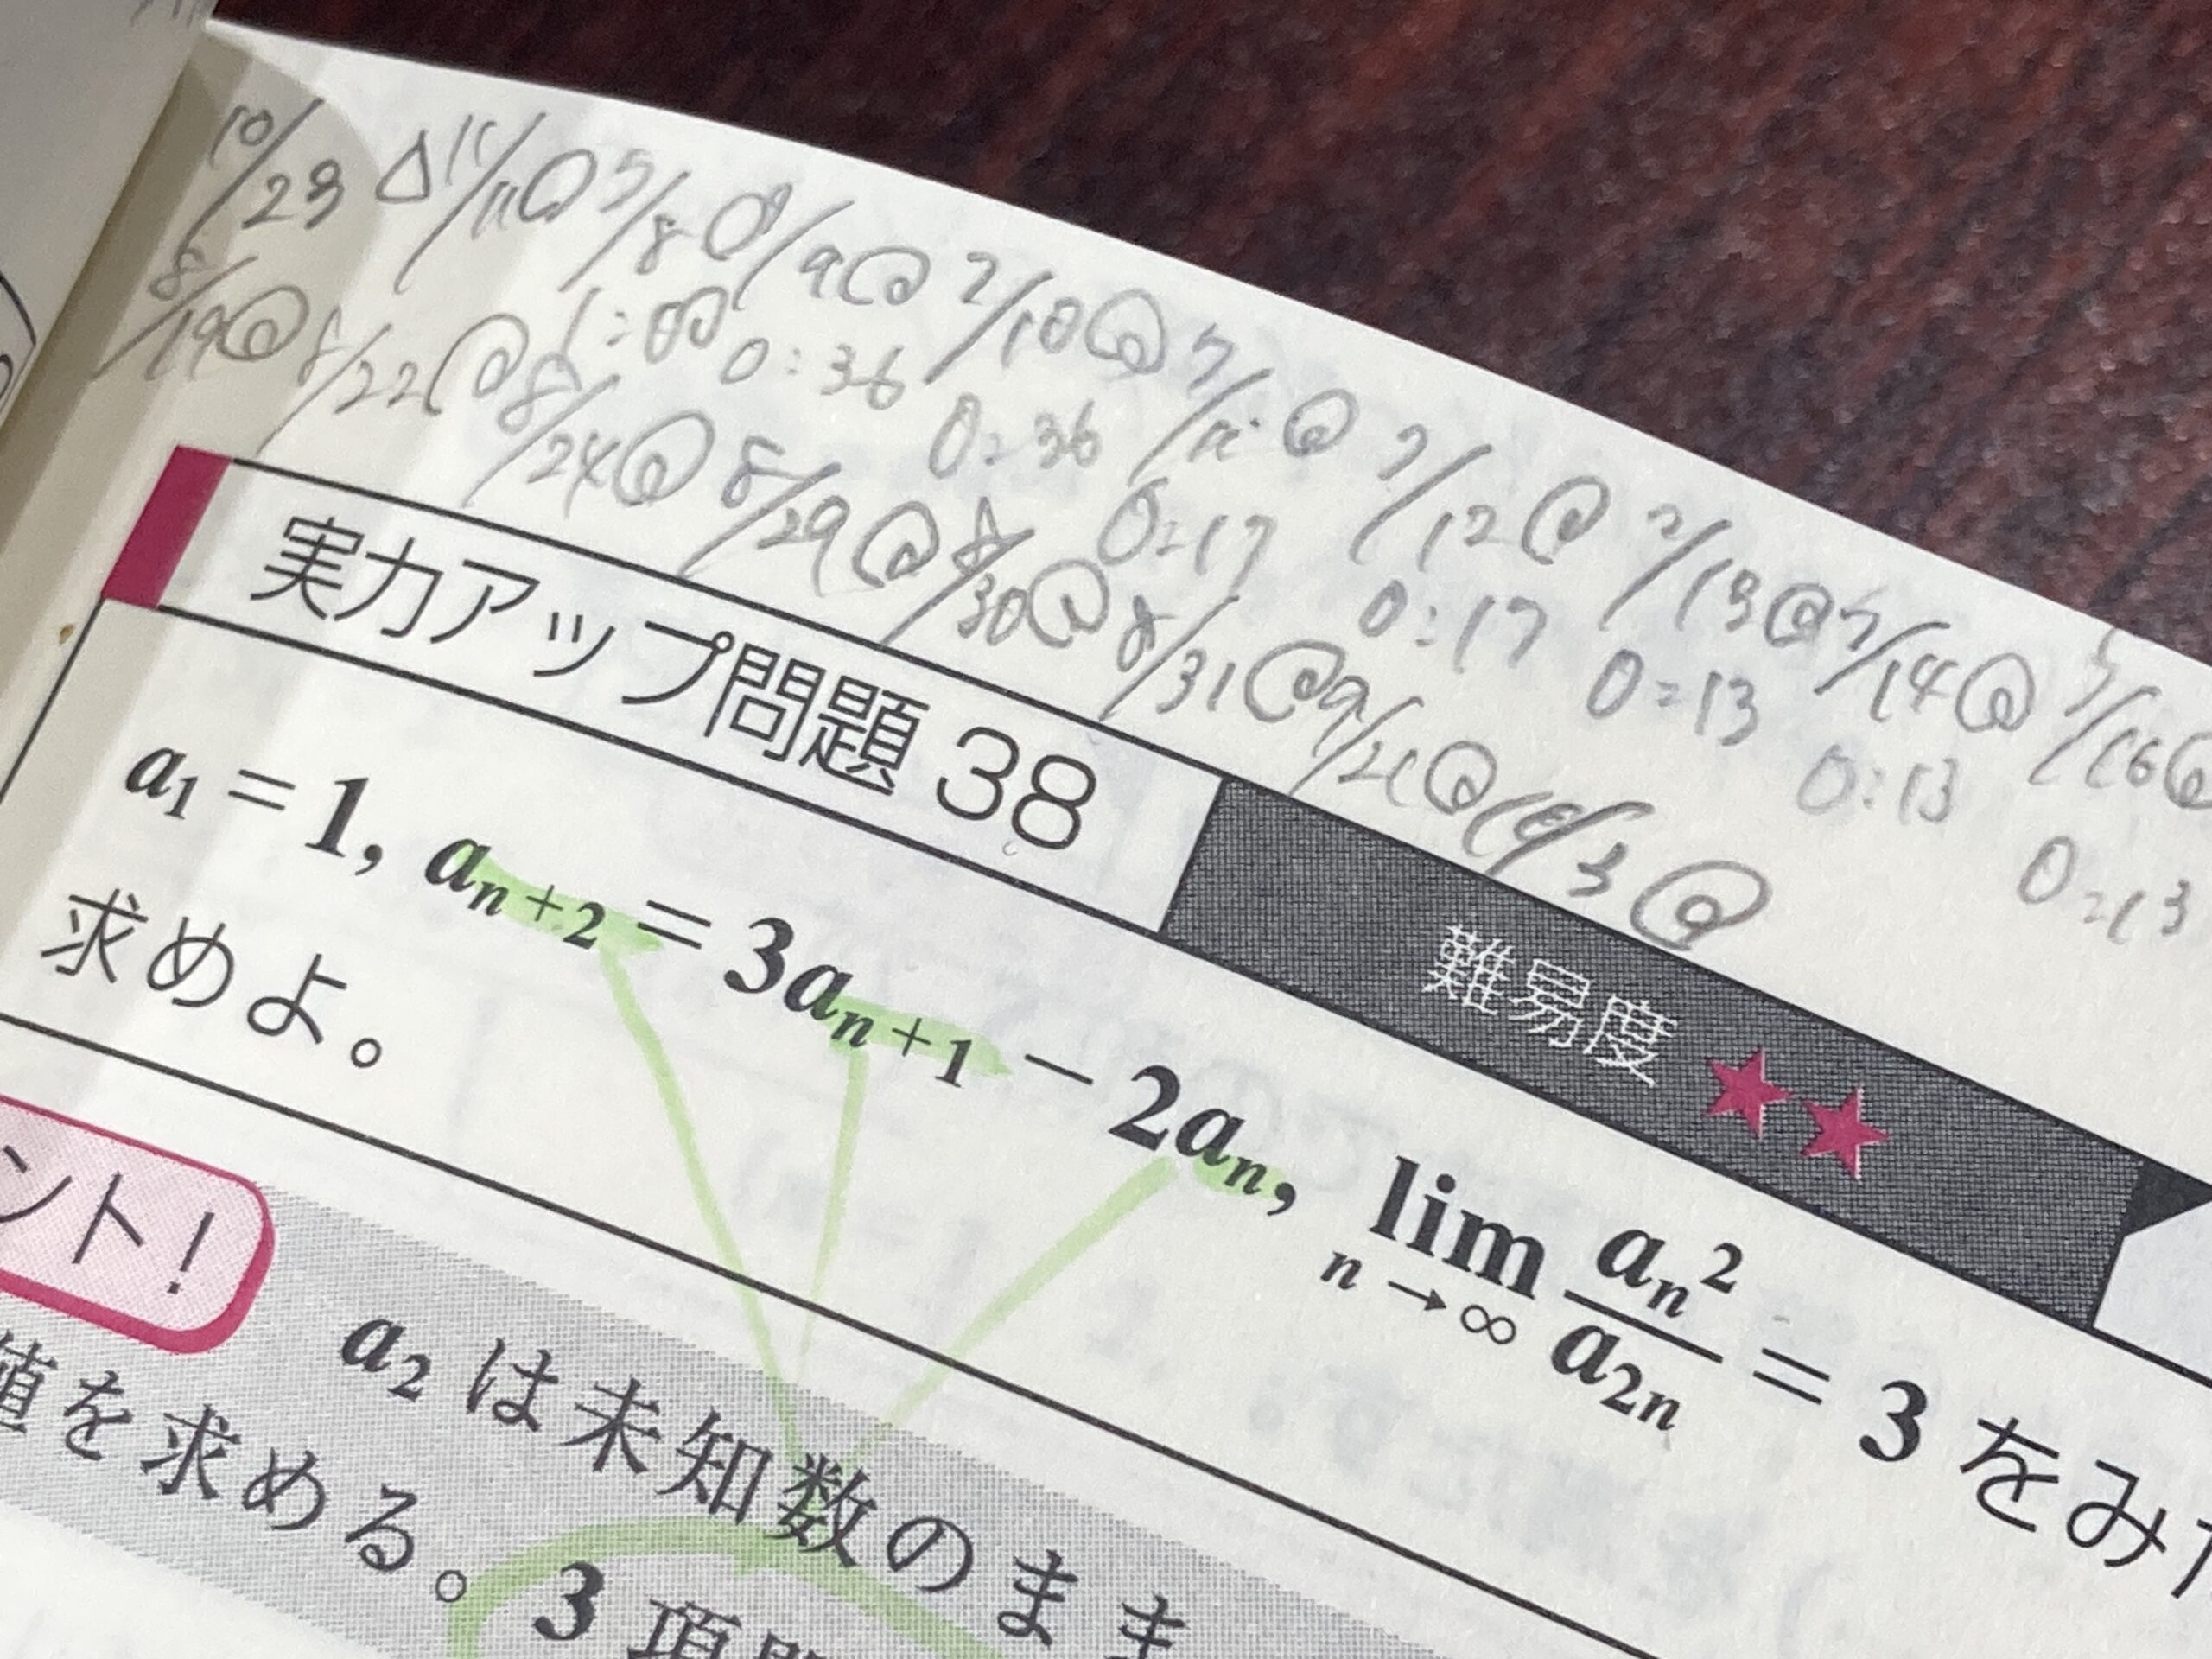 10/23 △ 11/11 5/8 9/9 7/10 7/11 7/12 7/13 7/14 7/16
1:00 0:36 0:36 0:17 0:17 0:13 0:13 0:13
8/19 8/22 8/24 8/29 8/30 8/31 9/21 10/3
実力アップ問題 38
難易度 ★★
a₁ = 1, aₙ₊₂ = 3aₙ₊₁ − 2aₙ, lim n→∞ aₙ²/a₂ₙ = 3 をみ
求めよ。
ント!
a₂ は未知数のまま
値を求める。3 項